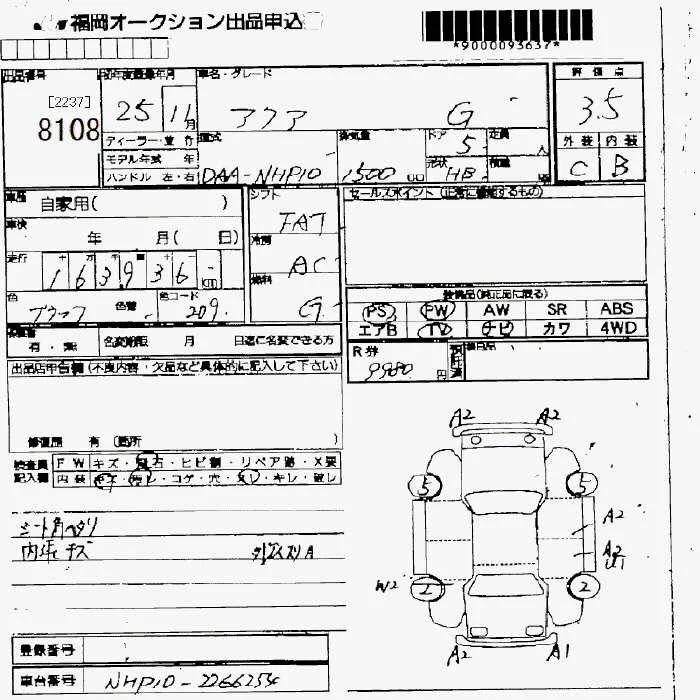 福岡オークション出品申込
*9000093637*
出品番号 初年度登録年月 車名・グレード 評価点
[2237]
8108
25 11月 アクア G 3.5
ディーラー・並行 型式 排気量 ドア 定員 外装 内装
モデル年式 年 5 人
ハンドル 左・右 DAA-NHP10 1500 cc 形状 HB 積載 C B
車歴 自家用( ) シフト FAT セールスポイント(正常に機能するもの)
車検 年 月( 日) 冷房 AC
走行 163936
燃料 G
色 ブラック 色替 色コード 209
装備品(純正品に限る)
PS PW AW SR ABS
エアB TV ナビ カワ 4WD
有・無 名変期限 月 日迄に名変できる方
R券 9980円 預託済
出品店申告欄(不良内容・欠品など具体的に記入して下さい)
修復歴 有(箇所 )
検査員 FW キズ・飛石・ヒビ割・リペア跡・X要
記入欄 内装 キズ・汚レ・コゲ・穴・スレ・キレ・破レ
シート角ヘタリ
内張キズ
A2 A2
5 5
A2
A2
U1
W2 2 2
A2 A1
登録番号
車台番号 NHP10-2266254